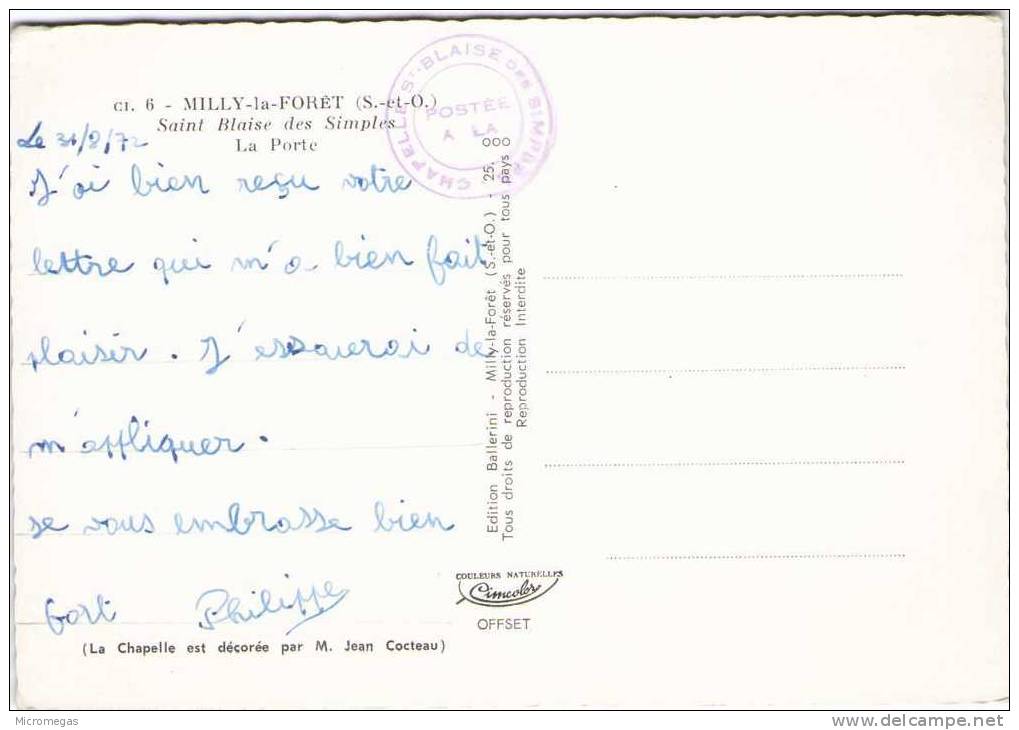 Cl. 6 - MILLY-la-FORÊT (S.-et-O.)
Saint Blaise des Simples
La Porte
CHAPELLE St-BLAISE DES SIMPLES
POSTÉE
A LA
Le 31/8/72
J'ai bien reçu votre
lettre qui m'a bien fait
plaisir. J'essaierai de
m'appliquer.
Je vous embrasse bien
fort Philippe
(La Chapelle est décorée par M. Jean Cocteau)
Edition Ballerini - Milly-la-Forêt (S.-et-O.) - 25.000
Tous droits de reproduction réservés pour tous pays
Reproduction Interdite
COULEURS NATURELLES
Cimcolor
OFFSET
Micromegas
delcampe.net